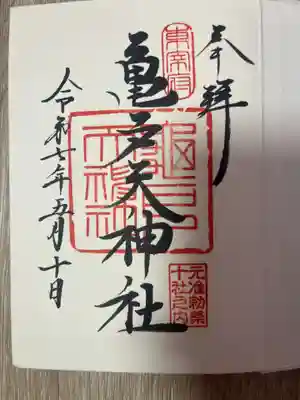 奉拝
元准勅祭
十社之内
東宰府
亀戸天神社
令和七年五月十日